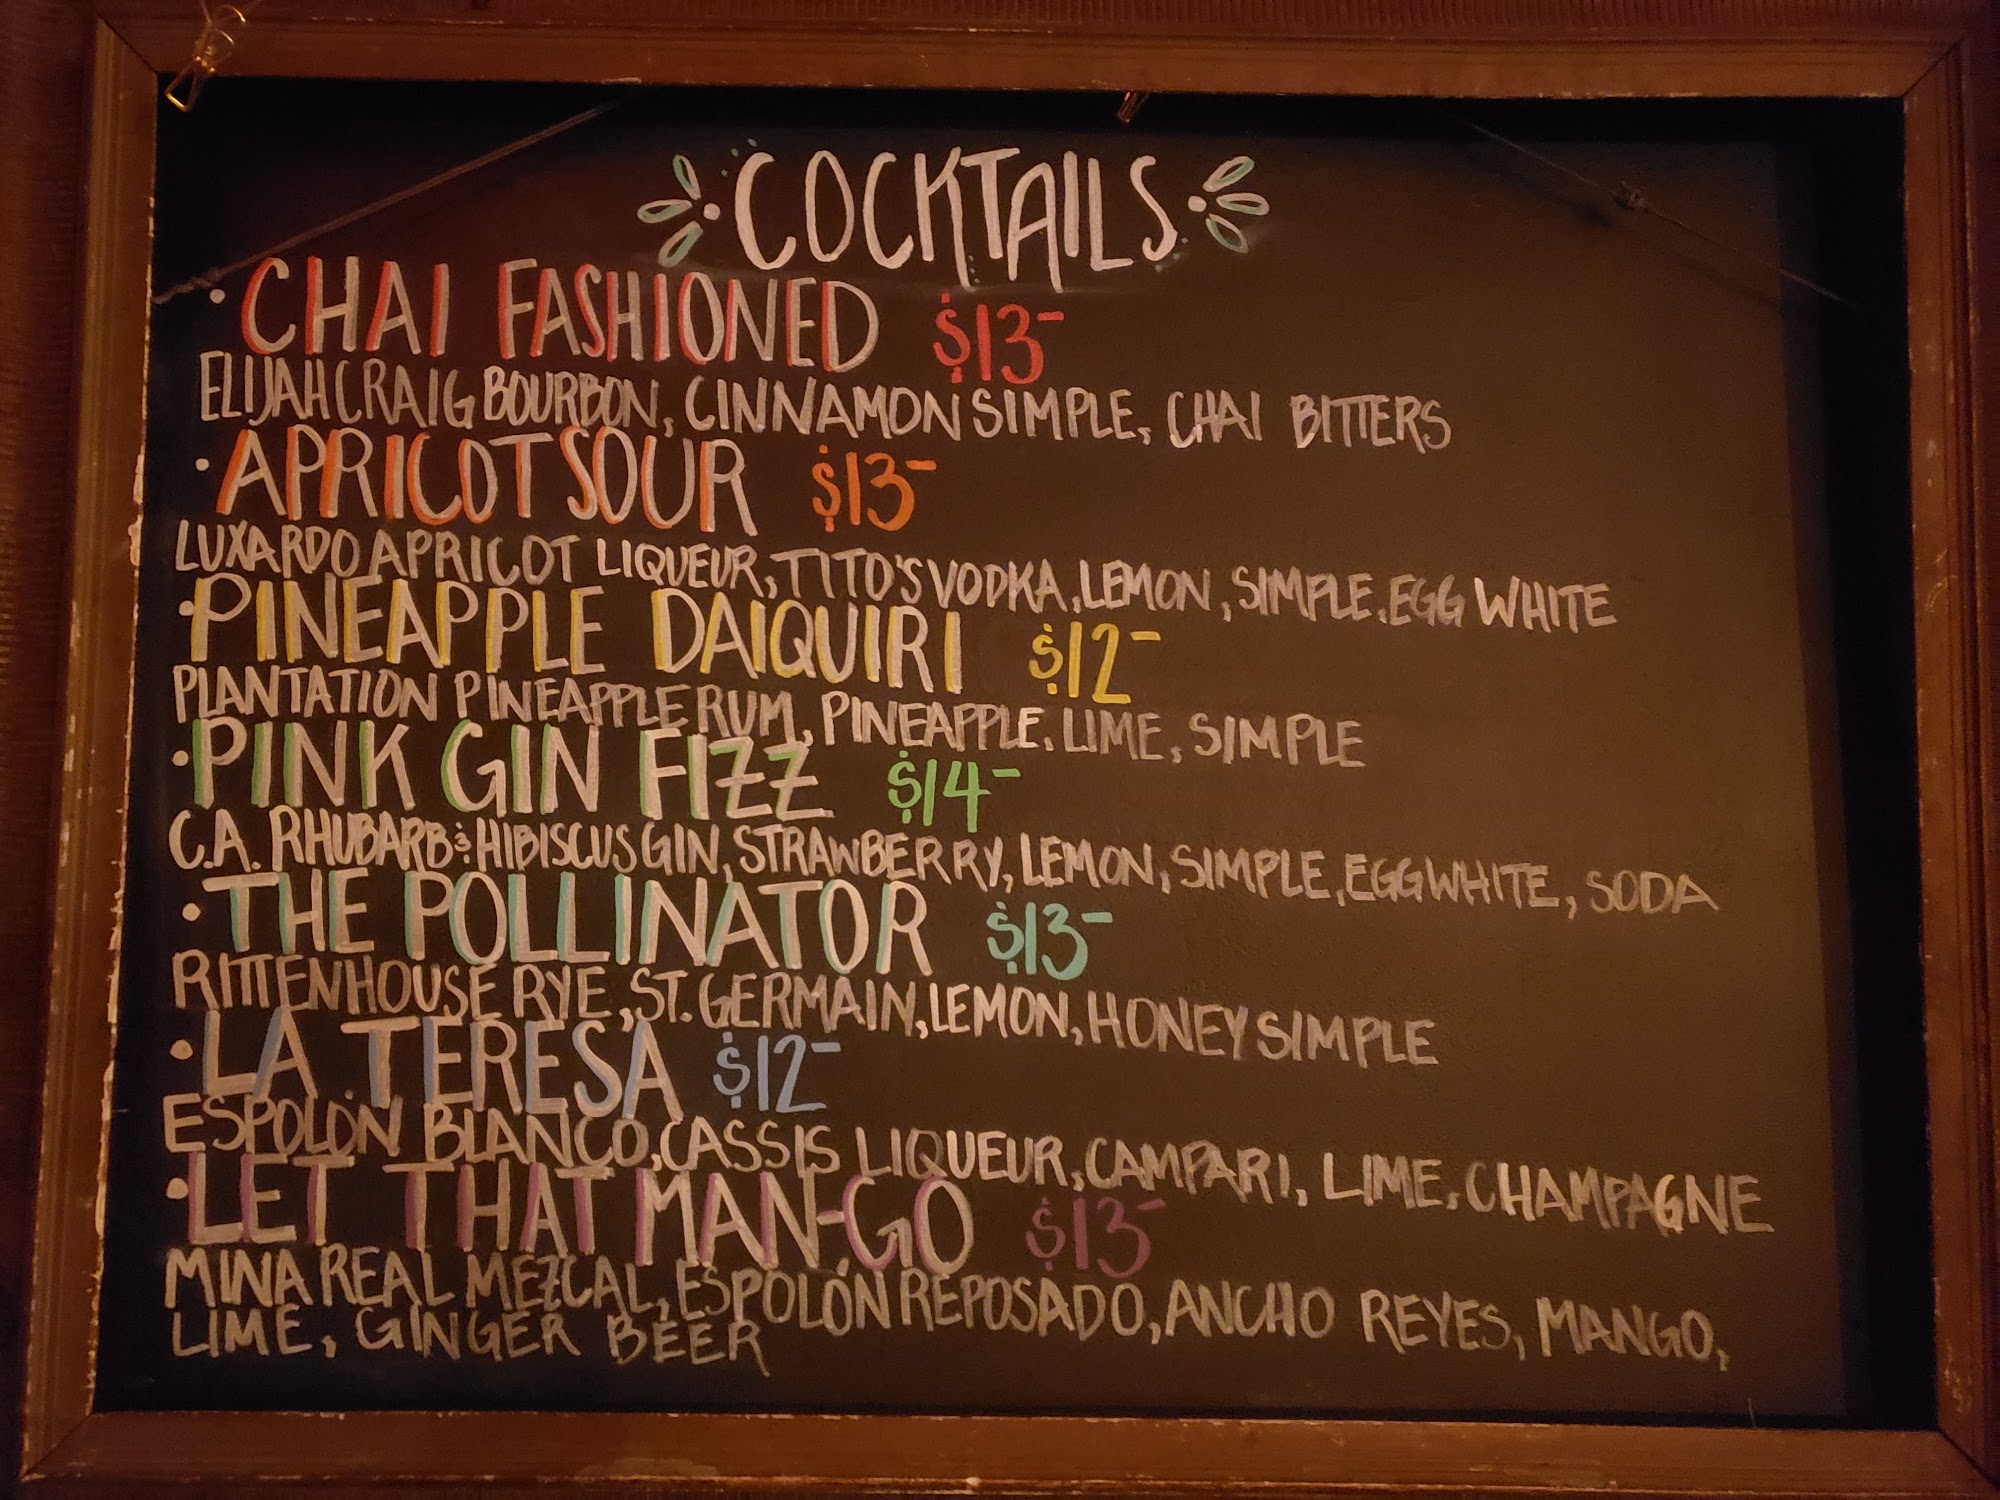 COCKTAILS
• CHAI FASHIONED $13-
ELIJAH CRAIG BOURBON, CINNAMON SIMPLE, CHAI BITTERS
• APRICOT SOUR $13-
LUXARDO APRICOT LIQUEUR, TITO'S VODKA, LEMON, SIMPLE, EGG WHITE
• PINEAPPLE DAIQUIRI $12-
PLANTATION PINEAPPLE RUM, PINEAPPLE, LIME, SIMPLE
• PINK GIN FIZZ $14-
C.A. RHUBARB & HIBISCUS GIN, STRAWBERRY, LEMON, SIMPLE, EGG WHITE, SODA
• THE POLLINATOR $13-
RITTENHOUSE RYE, ST. GERMAIN, LEMON, HONEY SIMPLE
• LA TERESA $12-
ESPOLÓN BLANCO, CASSIS LIQUEUR, CAMPARI, LIME, CHAMPAGNE
• LET THAT MAN-GO $13-
MINA REAL MEZCAL, ESPOLÓN REPOSADO, ANCHO REYES, MANGO,
LIME, GINGER BEER